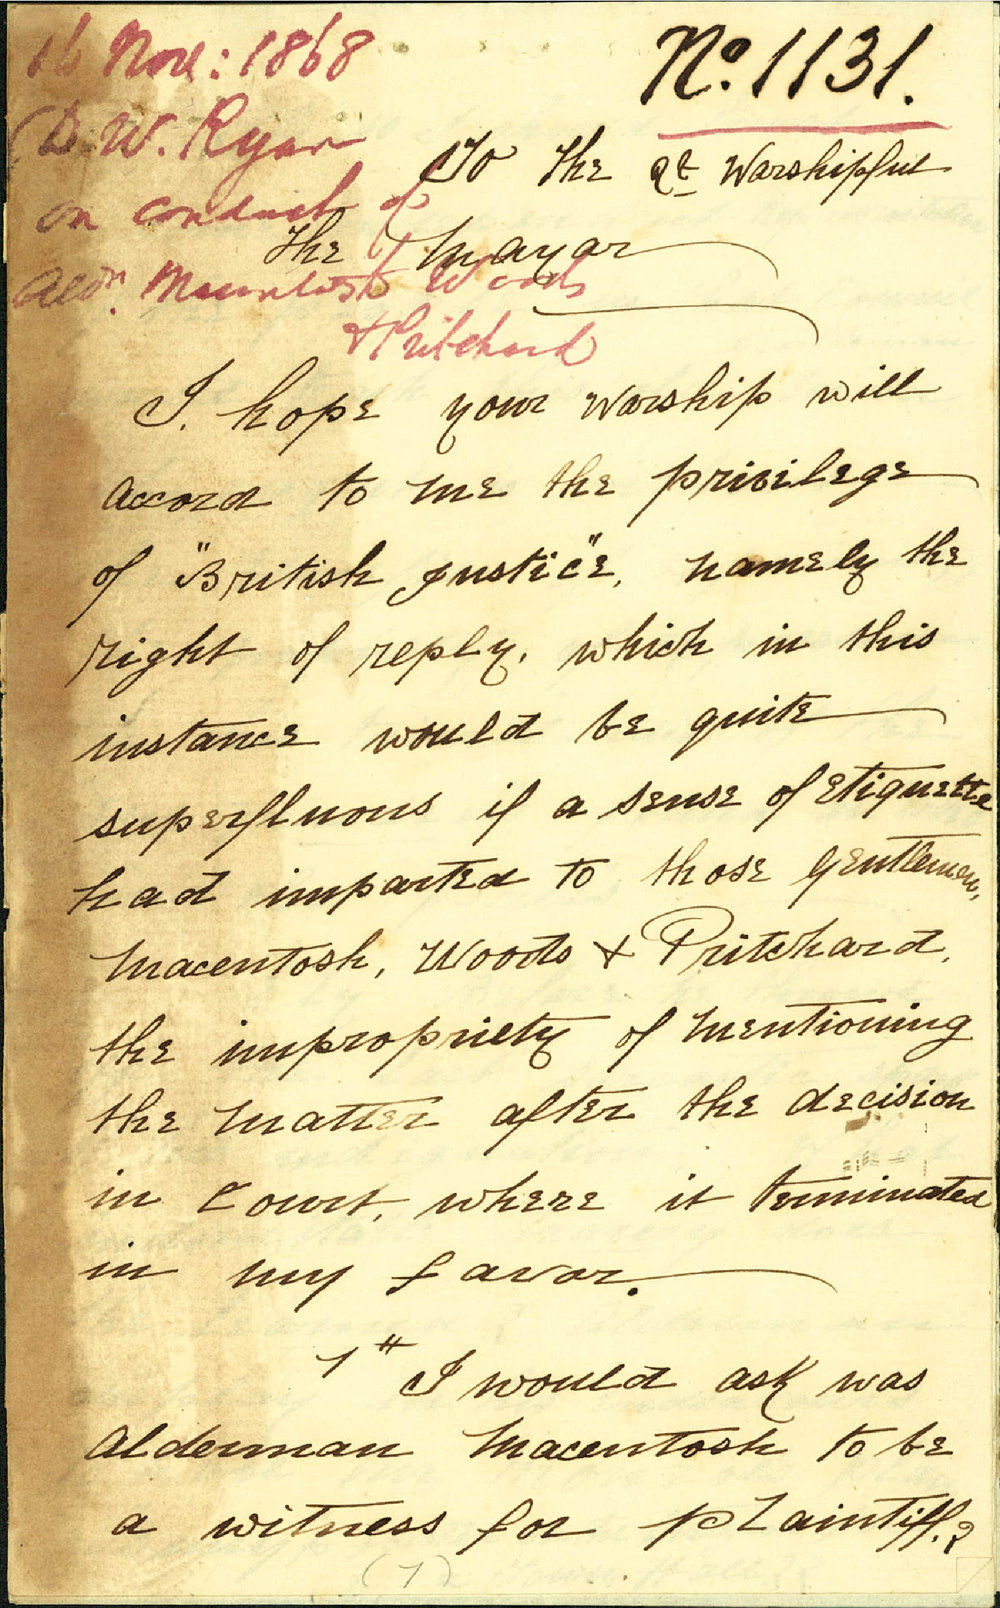 16 Nov: 1868
No. 1131.
(D. W. Ryan
on conduct of
Aldn. Macintosh Woods
& Pritchard
To the Rt Worshipful
the Mayor
I. hope your Worship will
accord to me the privilege
of "British Justice", namely the
right of reply, which in this
instance would be quite
superfluous if a sense of Etiquette
had imparted to those Gentlemen,
Macentosh, Woods & Pritchard,
the impropriety of mentioning
the matter after the decision
in Court, where it terminated
in my favor.
1" I would ask was
Alderman Macentosh to be
a witness for plaintiff.?
(1)